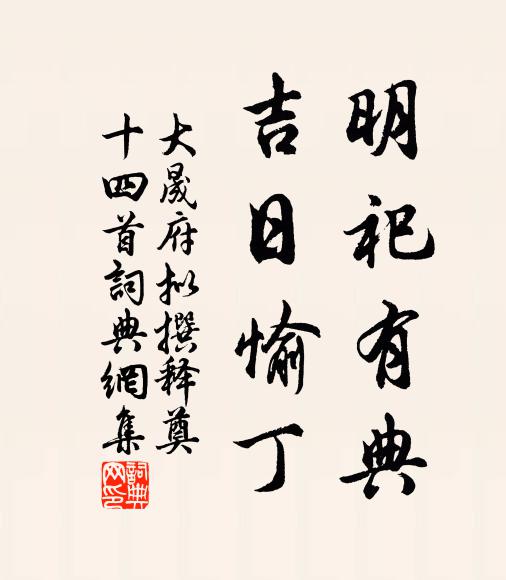 明祀有典
吉日愉丁
大晟府拟撰释奠
十四首詞典網集
詞典网印